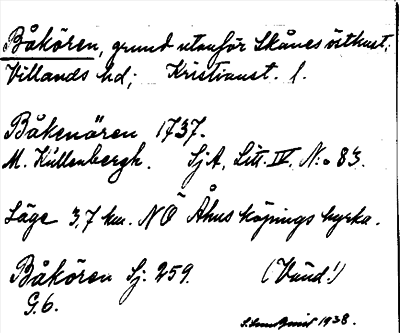 Båkören, grund utanför Skånes östkust;
Villands hd; Kristianst. l.
Båkenören 1737.
M. Kullenbergh. SjA, Litt. IV. N:o 83.
Läge 3,7 km. NÖ Åhus köpings kyrka.
Båkören Sj. 259. (Vänd!)
G.6.
1938.